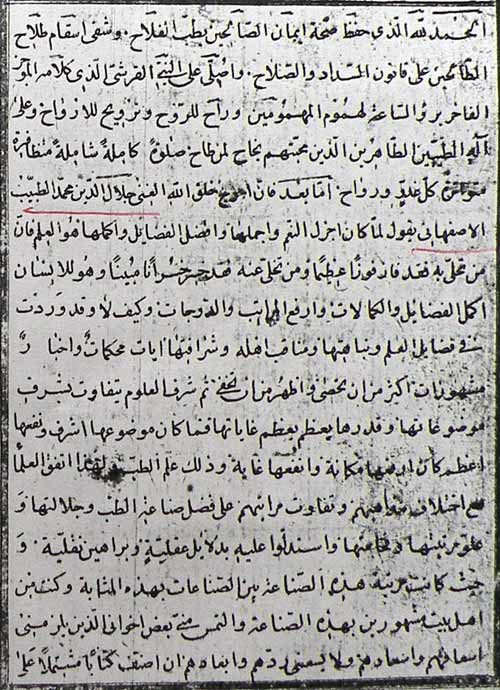 الحمد لله الذي حفظ صحة ايمان الصالحين بطب الفلاح وشفى اسقام طلاح
الطالحين على قانون السداد والصلاح واصلى على النبي القرشى الذي كلامه المؤثر
الفاخر برؤ الساعة لهموم المهمومين وراح للروح وترويح للارواح وعلى
آله الطيبين الطاهرين الذين محبتهم نجاح لمرطاح صلوة كاملة شاملة متظافرة
كل غدو ورواح اما بعد فان احوج خلق الله الغنى جلال الدين محمد الطبيب
الاصفهانى يقول لما كان اجزل النعم واجملها وافضل الفضايل واكملها هو العلم فان
من تحلى به فقد فاز فوزا عظيما ومن تخلى عنه فقد خسر خسرانا مبينا وهو للانسان
اكمل الفضايل والكمالات وارفع المراتب والدرجات وكيف لا وقد وردت
فى فضايل العلم ونباهتها ومناقب اهله وشرافتها آيات محكمات واخبار
مشهورات اكثر من ان يحصى واظهر من ان تخفى ثم شرف العلوم تتفاوت بشرف
موضوعاتها وقدرها يعظم بعظم غاياتها فما كان موضوعها اشرف ونفعها
اعظم كان ارفعها مكانة وانفعها غاية وذلك علم الطب ولهذا اتفق العلما
مع اختلاف مذاهبهم وتفاوت مراتبهم على فضل صناعة الطب وجلالتها و
علو مرتبتها وفخامتها واستدلوا عليه بدلايل عقلية وبراهين نقلية و
حيث كانت مرتبة هذه الصناعة بين الصناعات بهذه المثابة وكنت من
اهل بيت مشهورين بهذه الصناعة والتمس منى بعض اخوانى الذين يلزمنى
اسعافهم واسعادهم ولا يسعنى ردهم وابعادهم ان اصنف كتابا مشتملا على